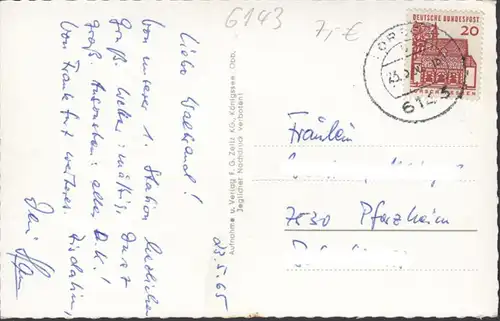 6143
7,-€
DEUTSCHE BUNDESPOST
20
6143
Liebe Waltraud!
von unserer 1. Station herzlichen
Gruß. Wetter: mäßig, Durst
groß. Ansonsten: alles O.K.!
Von Frankfurt weiteres. Bis dahin,
Dein
23.5.65
Aufnahme u. Verlag F. G. Zeitz KG., Königssee Obb.
Jeglicher Nachdruck verboten!
Fräulein
7530 Pforzheim